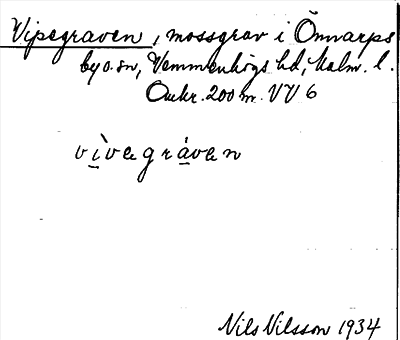 Vipegraven, mossgrav i Önnarps
by o. sn, Vemmenhögs hd, Malm. l.
Omkr. 200 m. VV 6
vìvegràven
Nils Nilsson 1934